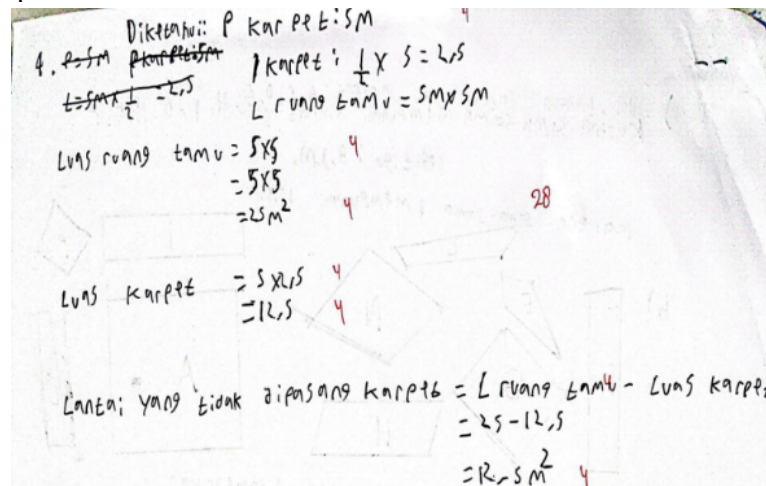 Diketahui: P karpet: 5M 4
4. P=5M Pkarpet:5M l karpet: 1/2 x 5 = 2,5
L=5Mx 1/2 = 2,5 L ruang tamu = 5Mx5M
Luas ruang tamu = 5x5 4
= 5x5
= 25 m² 4 28
Luas karpet = 5 x2,5 4
= 12,5 4
Lantai yang tidak dipasang karpet = L ruang tamu - Luas karpet 4
= 25-12,5
= 12,5 m² 4